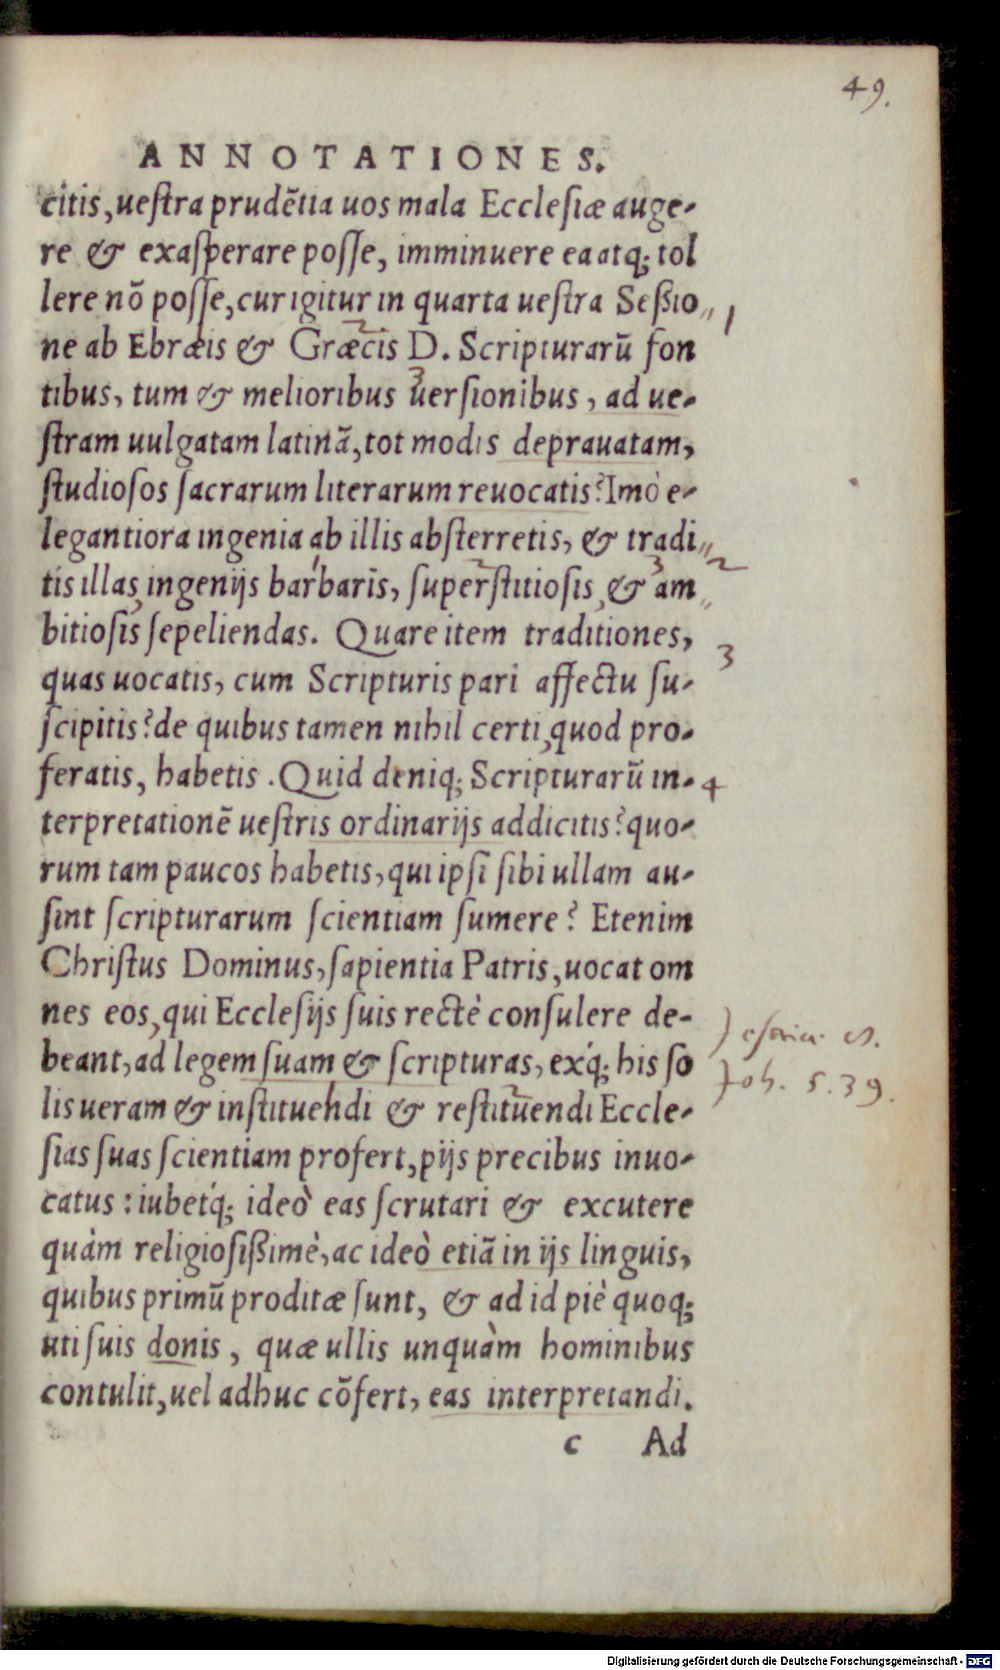 49.
ANNOTATIONES.
citis, ueſtra prudẽtia uos mala Eccleſiæ auge-
re & exaſperare poſſe, imminuere ea atq; tol
lere nõ poſſe, cur igitur in quarta ueſtra Seßio 1
ne ab Ebræis & Græcis D. Scripturarũ fon
tibus, tum & melioribus uerſionibus, ad ue-
ſtram uulgatam latinã, tot modis deprauatam,
ſtudioſos ſacrarum literarum reuocatis? Imò e-
legantiora ingenia ab illis abſterretis, & tradi 2
tis illas ingenijs barbaris, ſuperſtitioſis, & am
bitioſis ſepeliendas. Quare item traditiones, 3
quas uocatis, cum Scripturis pari affectu ſu-
ſcipitis? de quibus tamen nihil certi, quod pro-
feratis, habetis. Quid deniq; Scripturarũ in- 4
terpretationẽ ueſtris ordinarijs addicitis? quo-
rum tam paucos habetis, qui ipſi ſibi ullam au-
ſint ſcripturarum ſcientiam ſumere? Etenim
Chriſtus Dominus, ſapientia Patris, uocat om
nes eos, qui Eccleſijs ſuis rectè conſulere de-
beant, ad legem ſuam & ſcripturas, exq́; his ſo
lis ueram & inſtituendi & reſtituendi Eccle-
Joh. 5.39.
ſias ſuas ſcientiam profert, pijs precibus inuo-
catus: iubetq́; ideò eas ſcrutari & excutere
quàm religioſißimè, ac ideò etiã in ijs linguis,
quibus primũ proditæ ſunt, & ad id piè quoq;
uti ſuis donis, quæ ullis unquàm hominibus
contulit, uel adhuc cõfert, eas interpretandi.
c Ad
Digitalisierung gefördert durch die Deutsche Forschungsgemeinschaft - DFG